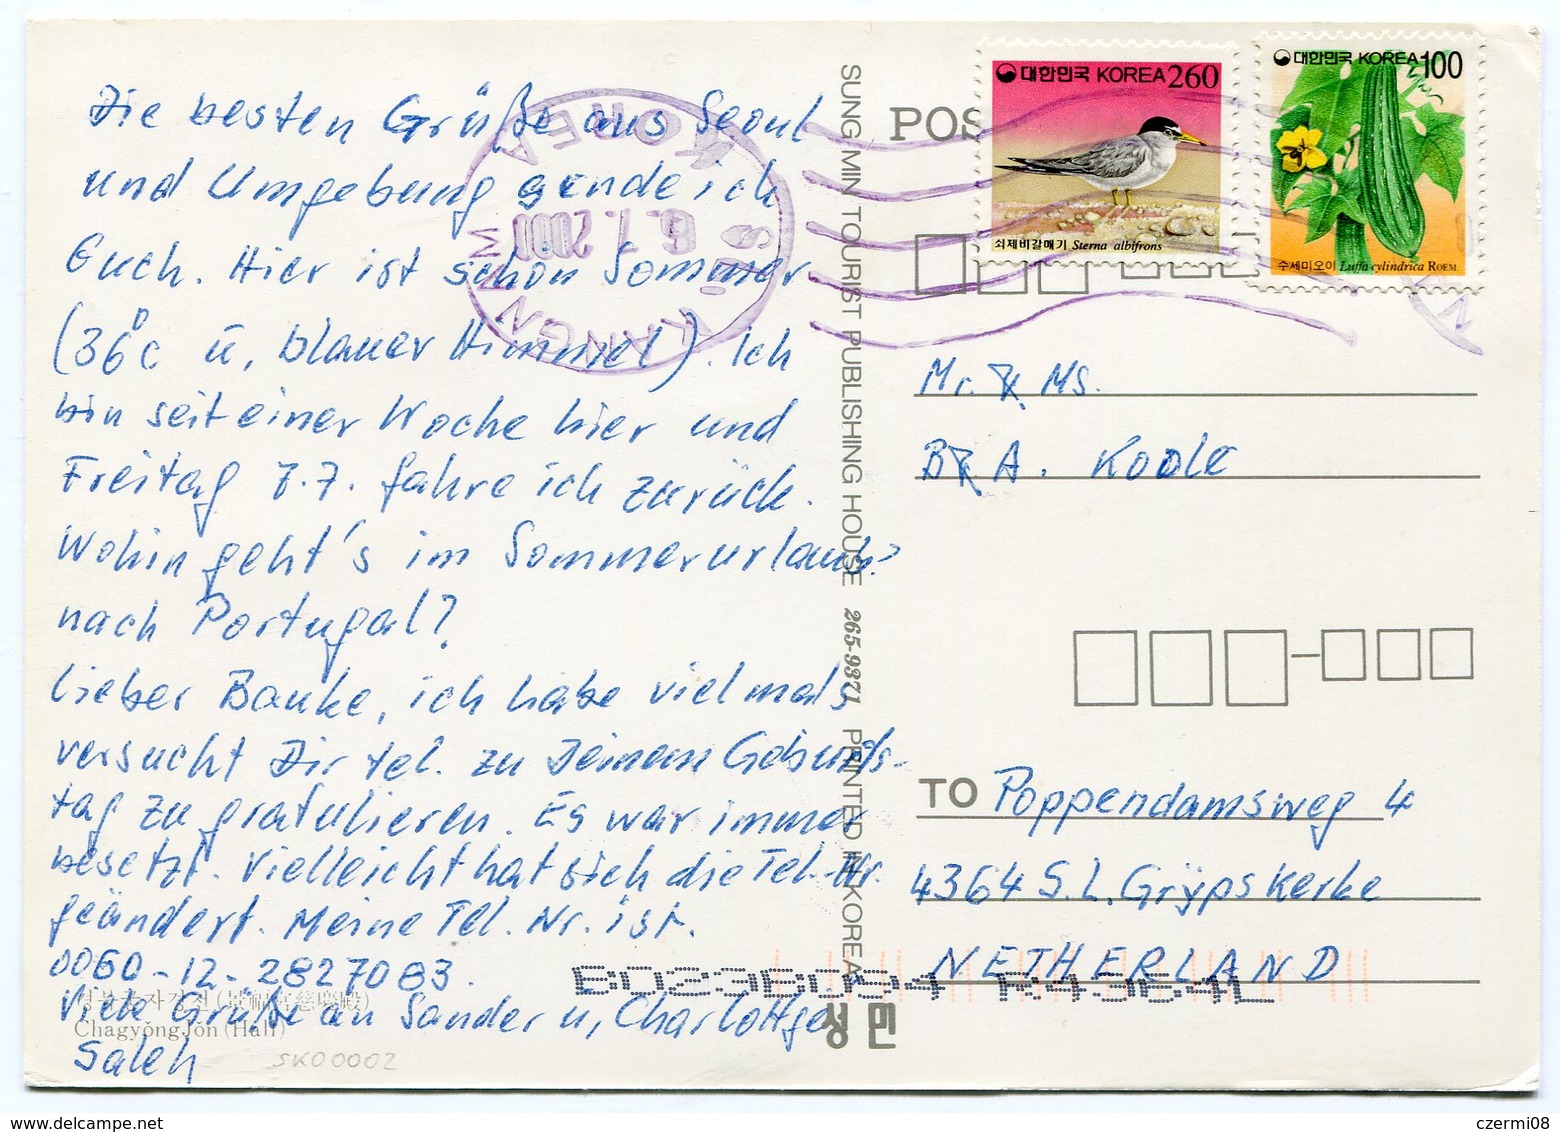 Die besten Grüße aus Seoul
und Umgebung sende ich
Euch. Hier ist schön Sommer
(36°c u, blauer Himmel). Ich
bin seit einer Woche hier und
Freitag 7.7. fahre ich zurück.
Wohin geht's im Sommerurlaub?
nach Portugal?
Lieber Bauke, ich habe vielmals
versucht Dir tel. zu Deinem Geburts-
tag zu gratulieren. Es war immer
besetzt. Vielleicht hat sich die Tel.-Nr.
geändert. Meine Tel. Nr. ist.
0060-12-2827083.
Viele Grüße an Sander u, Charlottje
Saleh
(景福宮慈慶殿)
Chagyŏngjŏn (Hall)
SK00002
KOREA
6.7.2000
KANGNAM
SUNG MIN TOURIST PUBLISHING HOUSE 265-9371 PRINTED IN KOREA
성민
POS
대한민국 KOREA 260
쇠제비갈매기 Sterna albifrons
대한민국 KOREA 100
수세미오이 Luffa cylindrica ROEM.
Mr. & Ms.
B & A. Koole
TO Poppendamsweg 4
4364 S.L. Grÿpskerke
NETHERLAND
B023B094 R4364L
czermi08